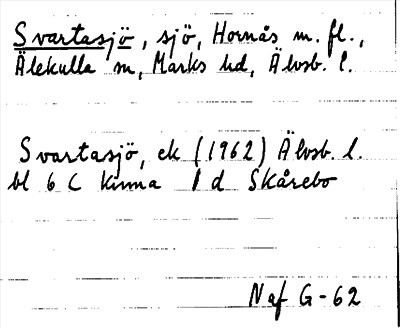 Svartasjö, sjö, Hornås m. fl.,
Älekulla sn, Marks hd, Älvsb. l.
Svartasjö, ek (1962) Älvsb. l.
bl 6 C Kinna 1 d Skårebo
Naf G-62